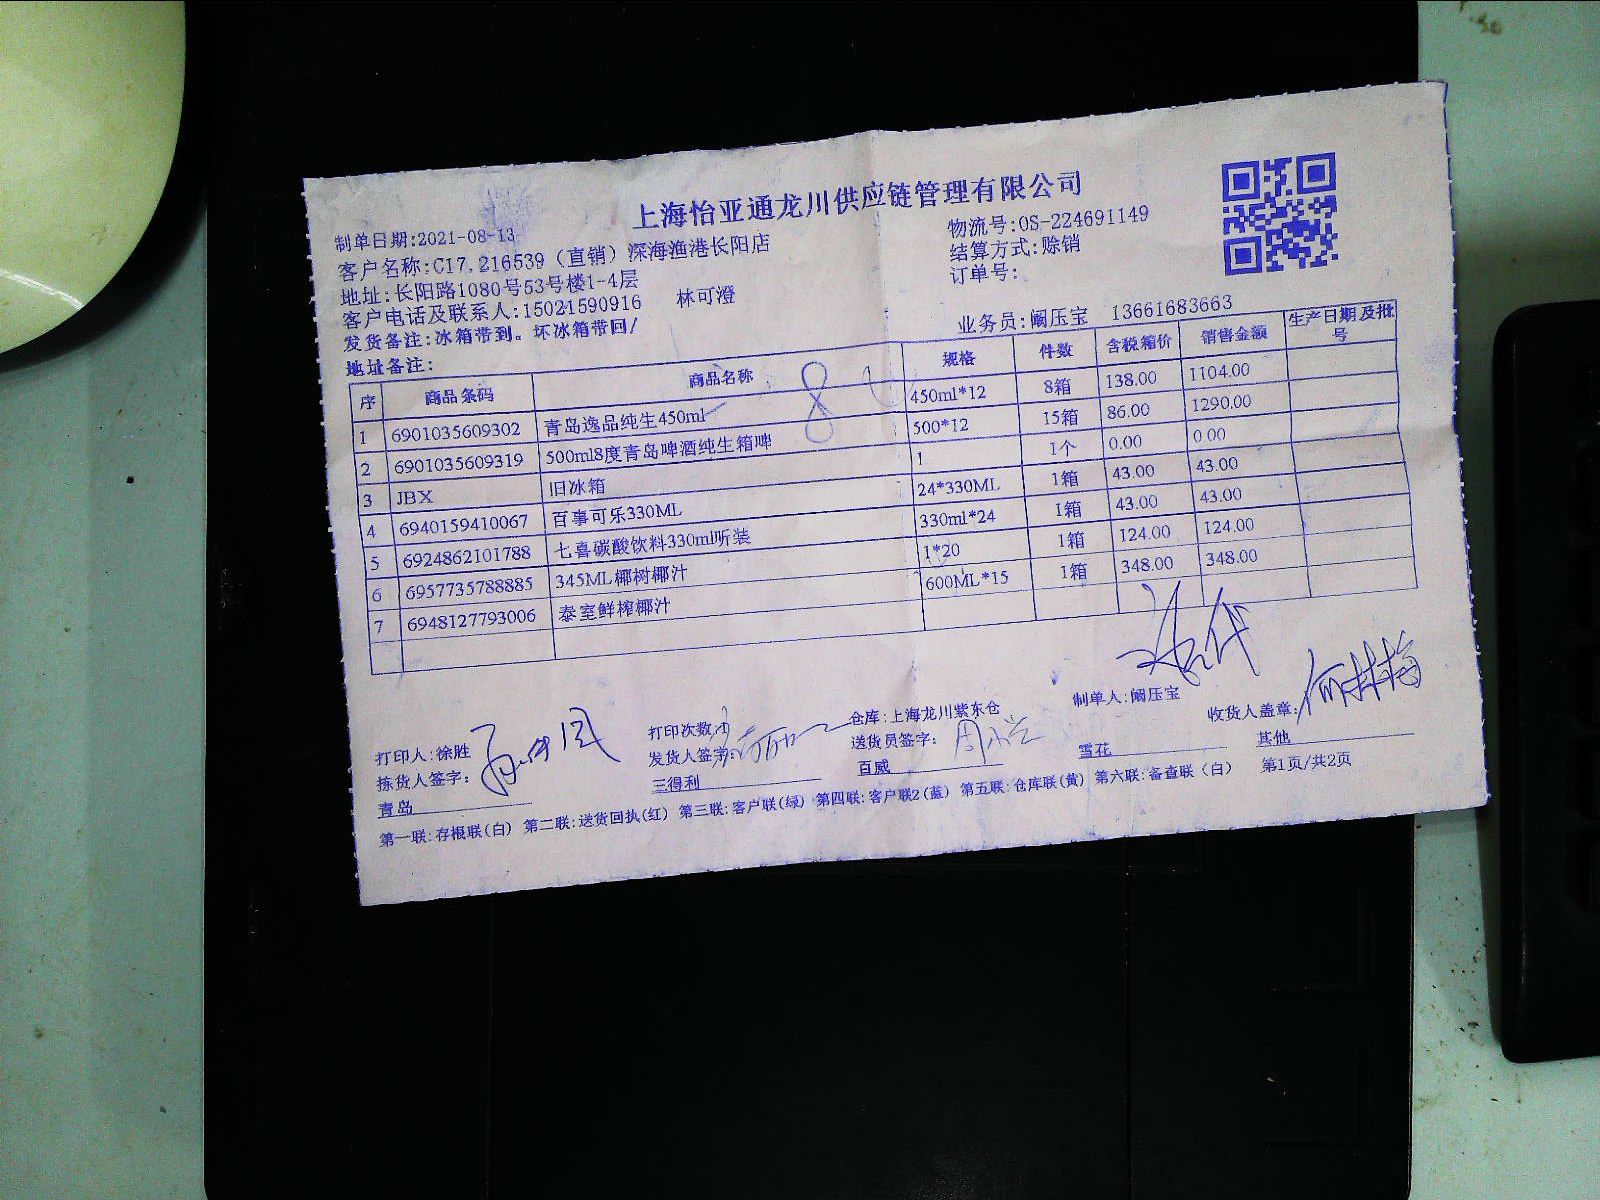 上海怡亚通龙川供应链管理有限公司
制单日期:2021-08-13
物流号:OS-224691149
客户名称:C17.216539（直销）深海渔港长阳店
结算方式:赊销
地址:长阳路1080号53号楼1-4层
订单号:
客户电话及联系人:15021590916 林可澄
发货备注:冰箱带到。坏冰箱带回/
业务员:阚压宝 13661683663
地址备注:
序 商品条码 商品名称 规格 件数 含税箱价 销售金额 生产日期及批号
1 6901035609302 青岛逸品纯生450ml 450ml*12 8箱 138.00 1104.00
2 6901035609319 500ml8度青岛啤酒纯生箱啤 500*12 15箱 86.00 1290.00
3 JBX 旧冰箱 1 1个 0.00 0.00
4 6940159410067 百事可乐330ML 24*330ML 1箱 43.00 43.00
5 6924862101788 七喜碳酸饮料330ml听装 330ml*24 1箱 43.00 43.00
6 6957735788885 345ML椰树椰汁 1*20 1箱 124.00 124.00
7 6948127793006 泰室鲜榨椰汁 600ML*15 1箱 348.00 348.00
8
打印人:徐胜 打印次数: 仓库:上海龙川紫东仓 制单人:阚压宝
拣货人签字: 发货人签字: 送货员签字: 收货人盖章:
青岛 三得利 百威 雪花 其他
第一联:存根联(白) 第二联:送货回执(红) 第三联:客户联(绿) 第四联:客户联2(蓝) 第五联:仓库联(黄) 第六联:备查联（白） 第1页/共2页